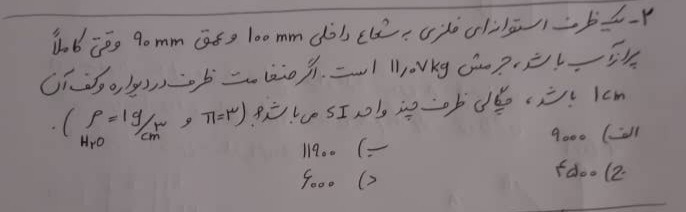 ۲- یک ظرف استوانه‌ای فلزی به شعاع داخلی ۱۰۰ mm و عمق ۹۰ mm وقتی کاملاً
پر از آب باشد، جرمش ۱۱٫۰۷ kg است. اگر ضخامت ظرف در دیواره و کف آن
۱ cm باشد، چگالی ظرف چند واحد SI می باشد؟ (π=۳ و ρ H₂O = ۱ g/cm³).
الف) ۹۰۰۰
ب) ۱۱۹۰۰
ج) ۴۵۰۰
د) ۶۰۰۰